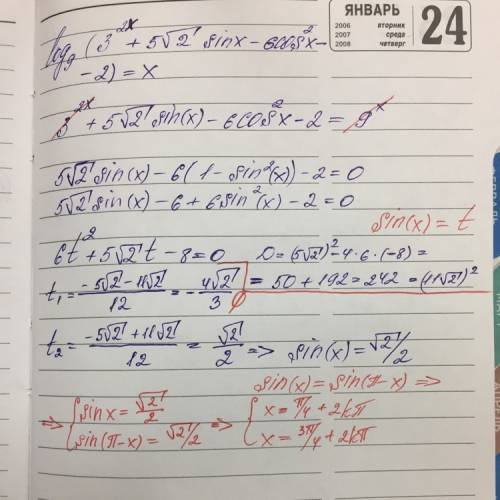 ЯНВАРЬ
2006 вторник
2007 среда
2008 четверг
24
log₉ (3^2x + 5√2 sinx − 6cos²x −
− 2) = x
3^2x + 5√2 sin(x) − 6cos²x − 2 = 9^x
5√2 sin(x) − 6(1 − sin²(x)) − 2 = 0
5√2 sin(x) − 6 + 6sin²(x) − 2 = 0
sin(x) = t
6t² + 5√2 t − 8 = 0 D = (5√2)² − 4·6·(−8) =
t₁ = (−5√2 − 11√2)/12 = − 4√2/3 ∅ = 50 + 192 = 242 = (11√2)²
t₂ = (−5√2 + 11√2)/12 = √2/2 => sin(x) = √2/2
sin(x) = sin(π − x) =>
=> { sinx = √2/2 => { x = π/4 + 2kπ
sin(π − x) = √2/2 x = 3π/4 + 2kπ